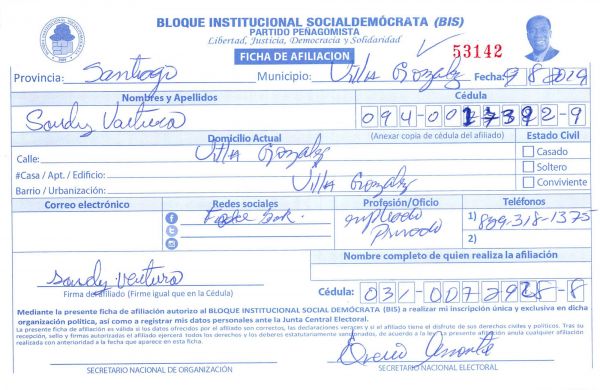 BLOQUE INSTITUCIONAL SOCIALDEMÓCRATA (BIS)
PARTIDO PEÑAGOMISTA
Libertad, Justicia, Democracia y Solidaridad
FICHA DE AFILIACION
53142
Provincia: Santiago Municipio: Villa Gonzalez Fecha: 9 8 2019
Nombres y Apellidos Cédula
Sandy Ventura 094-0017392-9
Domicilio Actual (Anexar copia de cédula del afiliado) Estado Civil
Calle: Villa Gonzalez Casado
#Casa / Apt. / Edificio: Soltero
Barrio / Urbanización: Villa Gonzalez Conviviente
Correo electrónico Redes sociales Profesión/Oficio Teléfonos
Empleado 1) 809-318-1375
Privado 2)
Nombre completo de quien realiza la afiliación
sandy ventura
Firma del afiliado (Firme igual que en la Cédula) Cédula: 031-0072928-8
Mediante la presente ficha de afiliación autorizo al BLOQUE INSTITUCIONAL SOCIAL DEMÓCRATA (BIS) a realizar mi inscripción única y exclusiva en dicha
organización política, así como a registrar mis datos personales ante la Junta Central Electoral.
La presente ficha de afiliación es válida si los datos ofrecidos por el afiliado son correctos, las declaraciones veraces y si el afiliado tiene el disfrute de sus derechos civiles y políticos. Tras su
recepción, sello y firmas autorizadas el afiliado ejercerá todos los derechos y los deberes estatutariamente sancionados, de acuerdo a la ley. La presente afiliación anula cualquier afiliación
realizada con anterioridad a la fecha que aparece en esta ficha.
SECRETARIO NACIONAL DE ORGANIZACIÓN SECRETARIO NACIONAL ELECTORAL